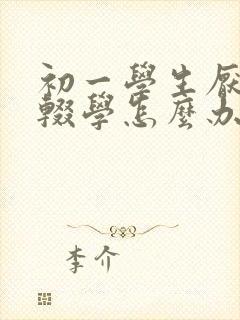 初一學生厭
輟學怎麼办
李介